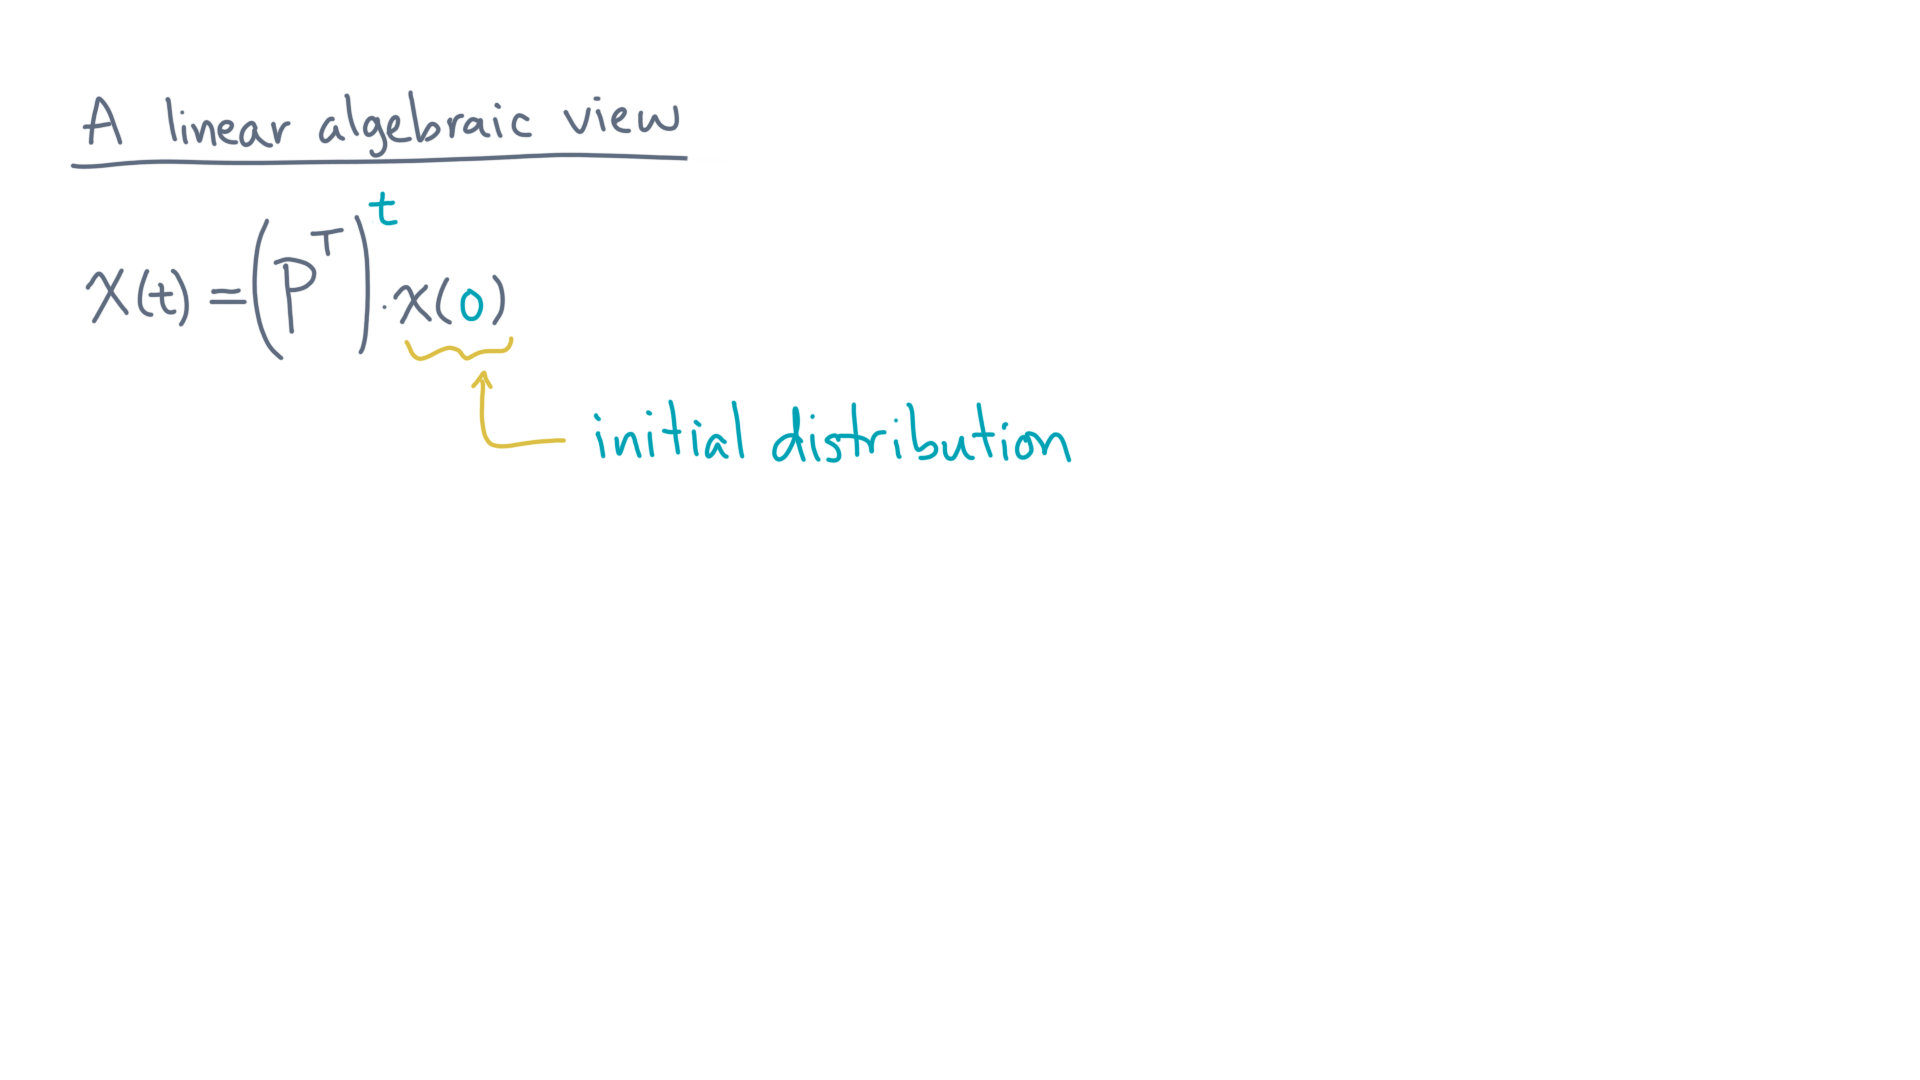 A linear algebraic view
X(t) = (P^T)^t · x(0)
initial distribution